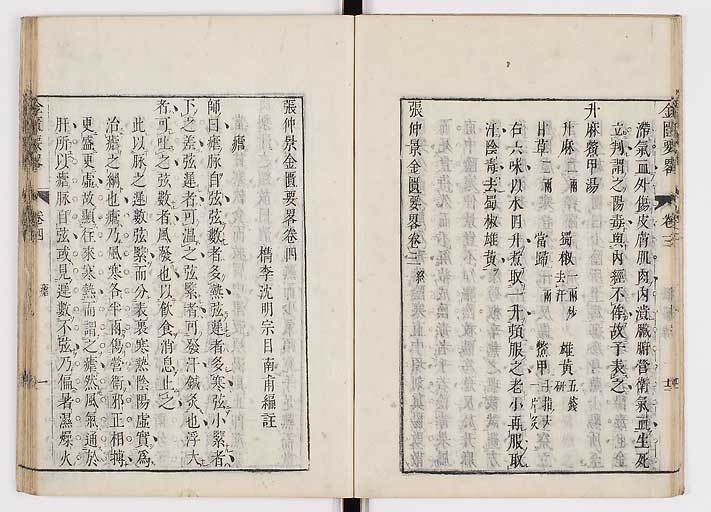 金匱要略 卷三
滯氣血外傷皮膚肌肉內潰臟腑營衛氣血生死
立判謂之陽毒與內經不侔故予表之
升麻鱉甲湯
升麻二兩 蜀椒一兩炒去汗 雄黃五錢研
甘草二兩 當歸一兩 鱉甲手指大一片炙
右六味以水四升煮取一升頓服之老小再服取
汗陰毒去蜀椒雄黃
張仲景金匱要略卷三終
張仲景金匱要略卷四
檇李沈明宗目南甫編註
瘧
師曰瘧脉自弦弦數者多熱弦遲者多寒弦小緊者
下之差弦遲者可溫之弦緊者可發汗鍼灸也浮大
者可吐之弦數者風發也以飲食消息止之
此以脉之遲數弦緊而分表裏寒熱陰陽虛實為
治瘧之綱也瘧乃風寒各半兩傷營衛邪正相搏
更盛更虛故顯往來寒熱而謂之瘧然風氣通於
肝所以瘧脉自弦或見遲數不弦乃偏暑濕燥火
金匱要略 卷四 瘧 一